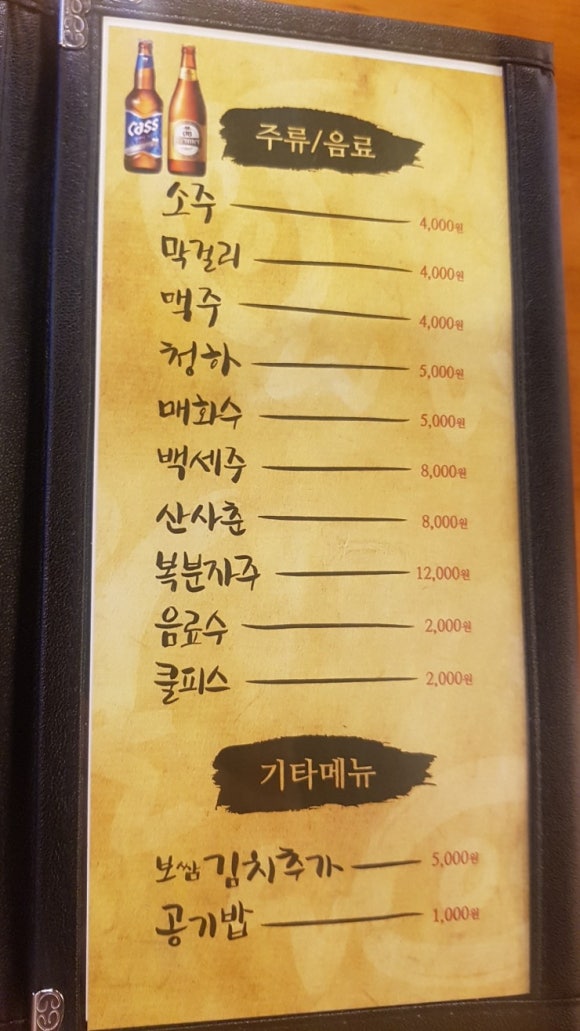 Cass
주류/음료
소주 4,000원
막걸리 4,000원
맥주 4,000원
청하 5,000원
매화수 5,000원
백세주 8,000원
산사춘 8,000원
복분자주 12,000원
음료수 2,000원
쿨피스 2,000원
기타메뉴
보쌈 김치추가 5,000원
공기밥 1,000원